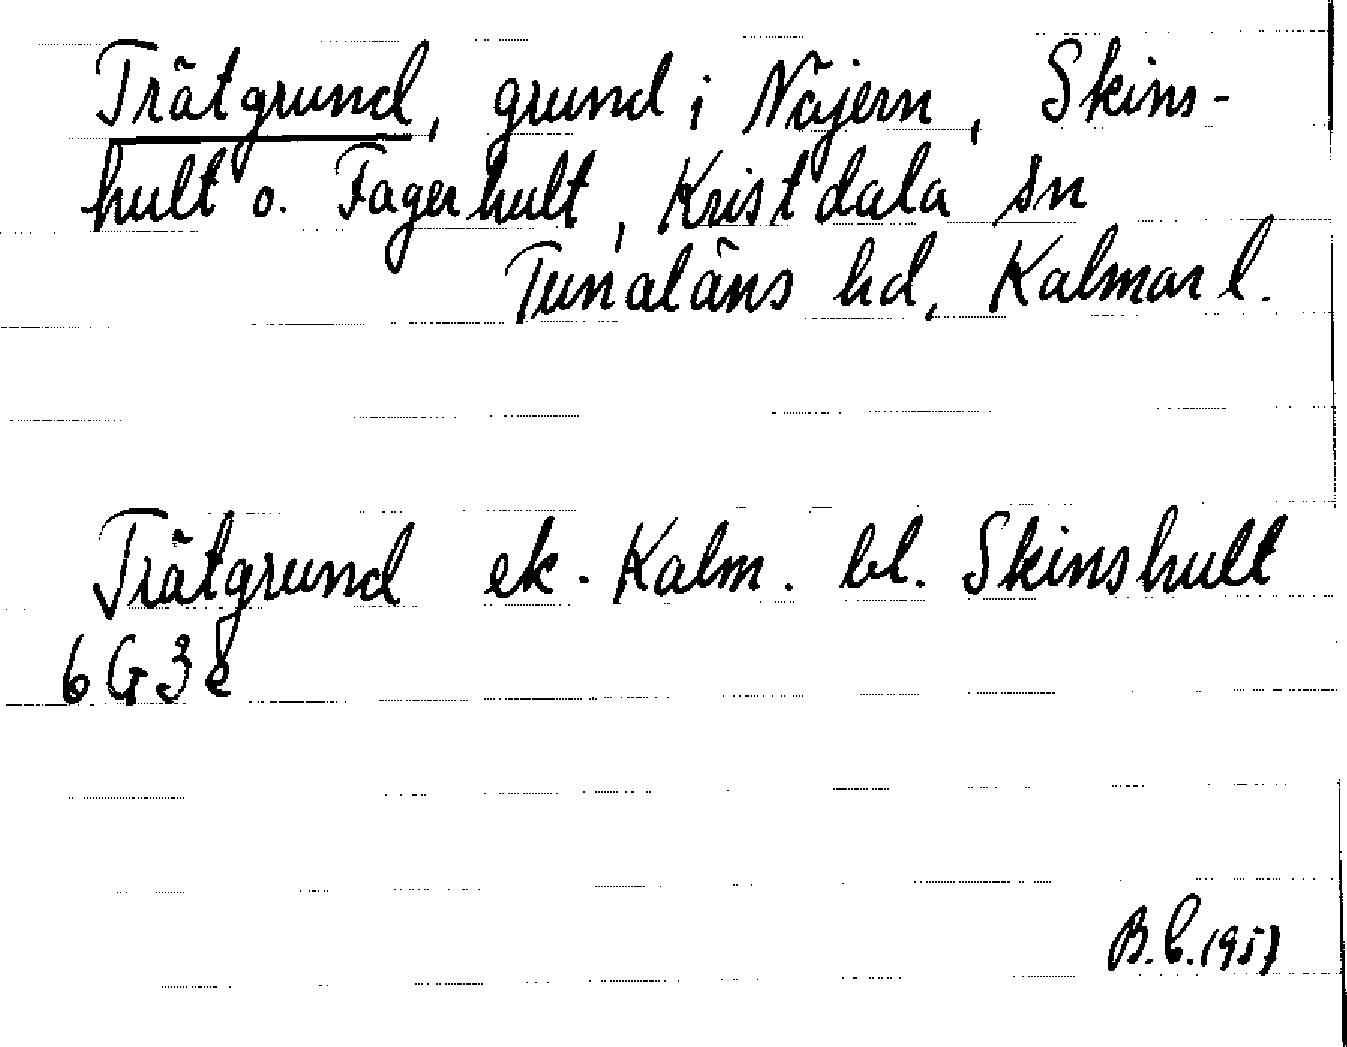 Trätgrund, grund i Näjern, Skins-
hult o. Fagerhult, Kristdala sn
Tunaläns hd, Kalmar l.
Trätgrund ek. Kalm. bl. Skinshult
6G3e
B.C. 1957